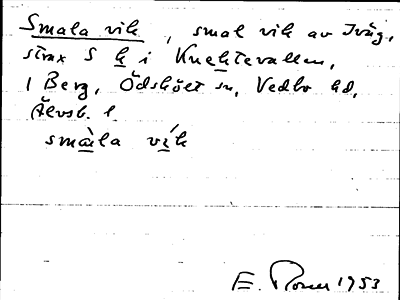 Smala vik, smal vik av Iväg,
strax S k i Knektevallen,
1 Berg, Ödskölt sn, Vedbo hd,
Älvsb. l.
smàla vík
E. Rosen 1953